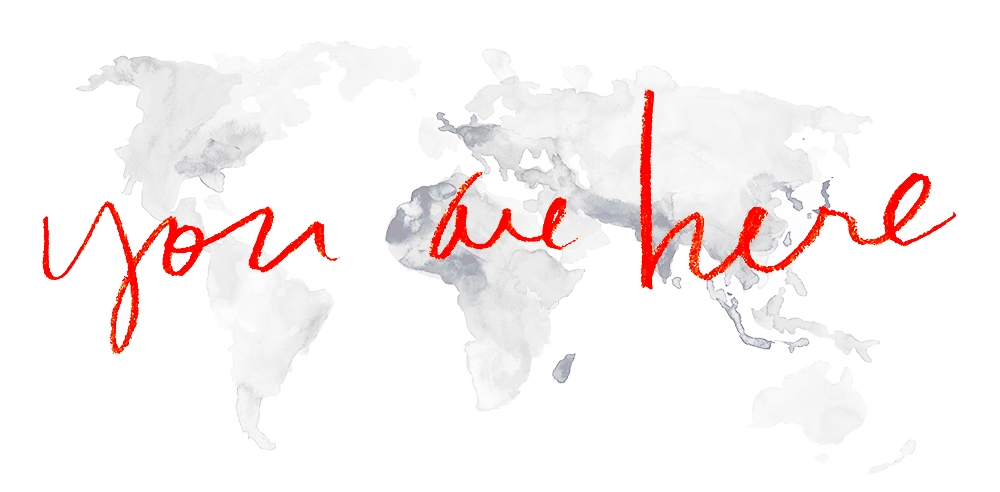 you are here